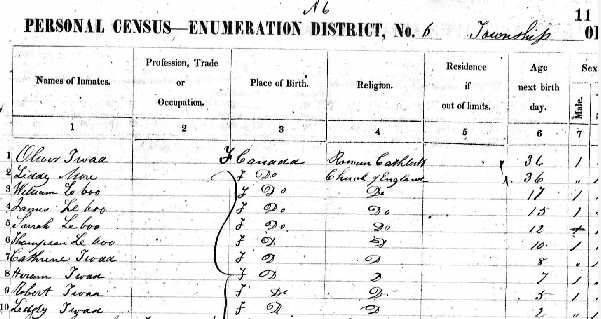 A6
11
PERSONAL CENSUS—ENUMERATION DISTRICT, No. 6 Township
Names of Inmates. Profession, Trade or Occupation. Place of Birth. Religion. Residence if out of limits. Age next birth day. Sex
Male.
1 2 3 4 5 6 7
1 Oliver Twaa F Canada Roman Catholick 36 1
2 Liddy More F Do Church of England 36 "
3 William Le boo F Do Do 17 1
4 James Le boo F Do Do 15 1
5 Sarah Le boo F Do Do 12
6 Thompson Le boo F D D 10 1
7 Cathrine Twaa F D D 8 "
8 Hiram Twaa F D D 7 1
9 Robert Twaa F Do D 5 1
10 Liddy Twaa F D D 2 "